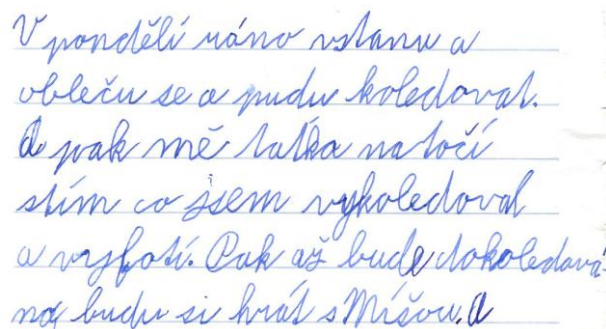 V pondělí ráno vstanu a
obleču se a pudu koledovat.
A pak mě taťka natočí
stím co jsem vykoledoval
a vyfotí. Pak až bude dokoledová-
no, budu si hrát s Míšou. A